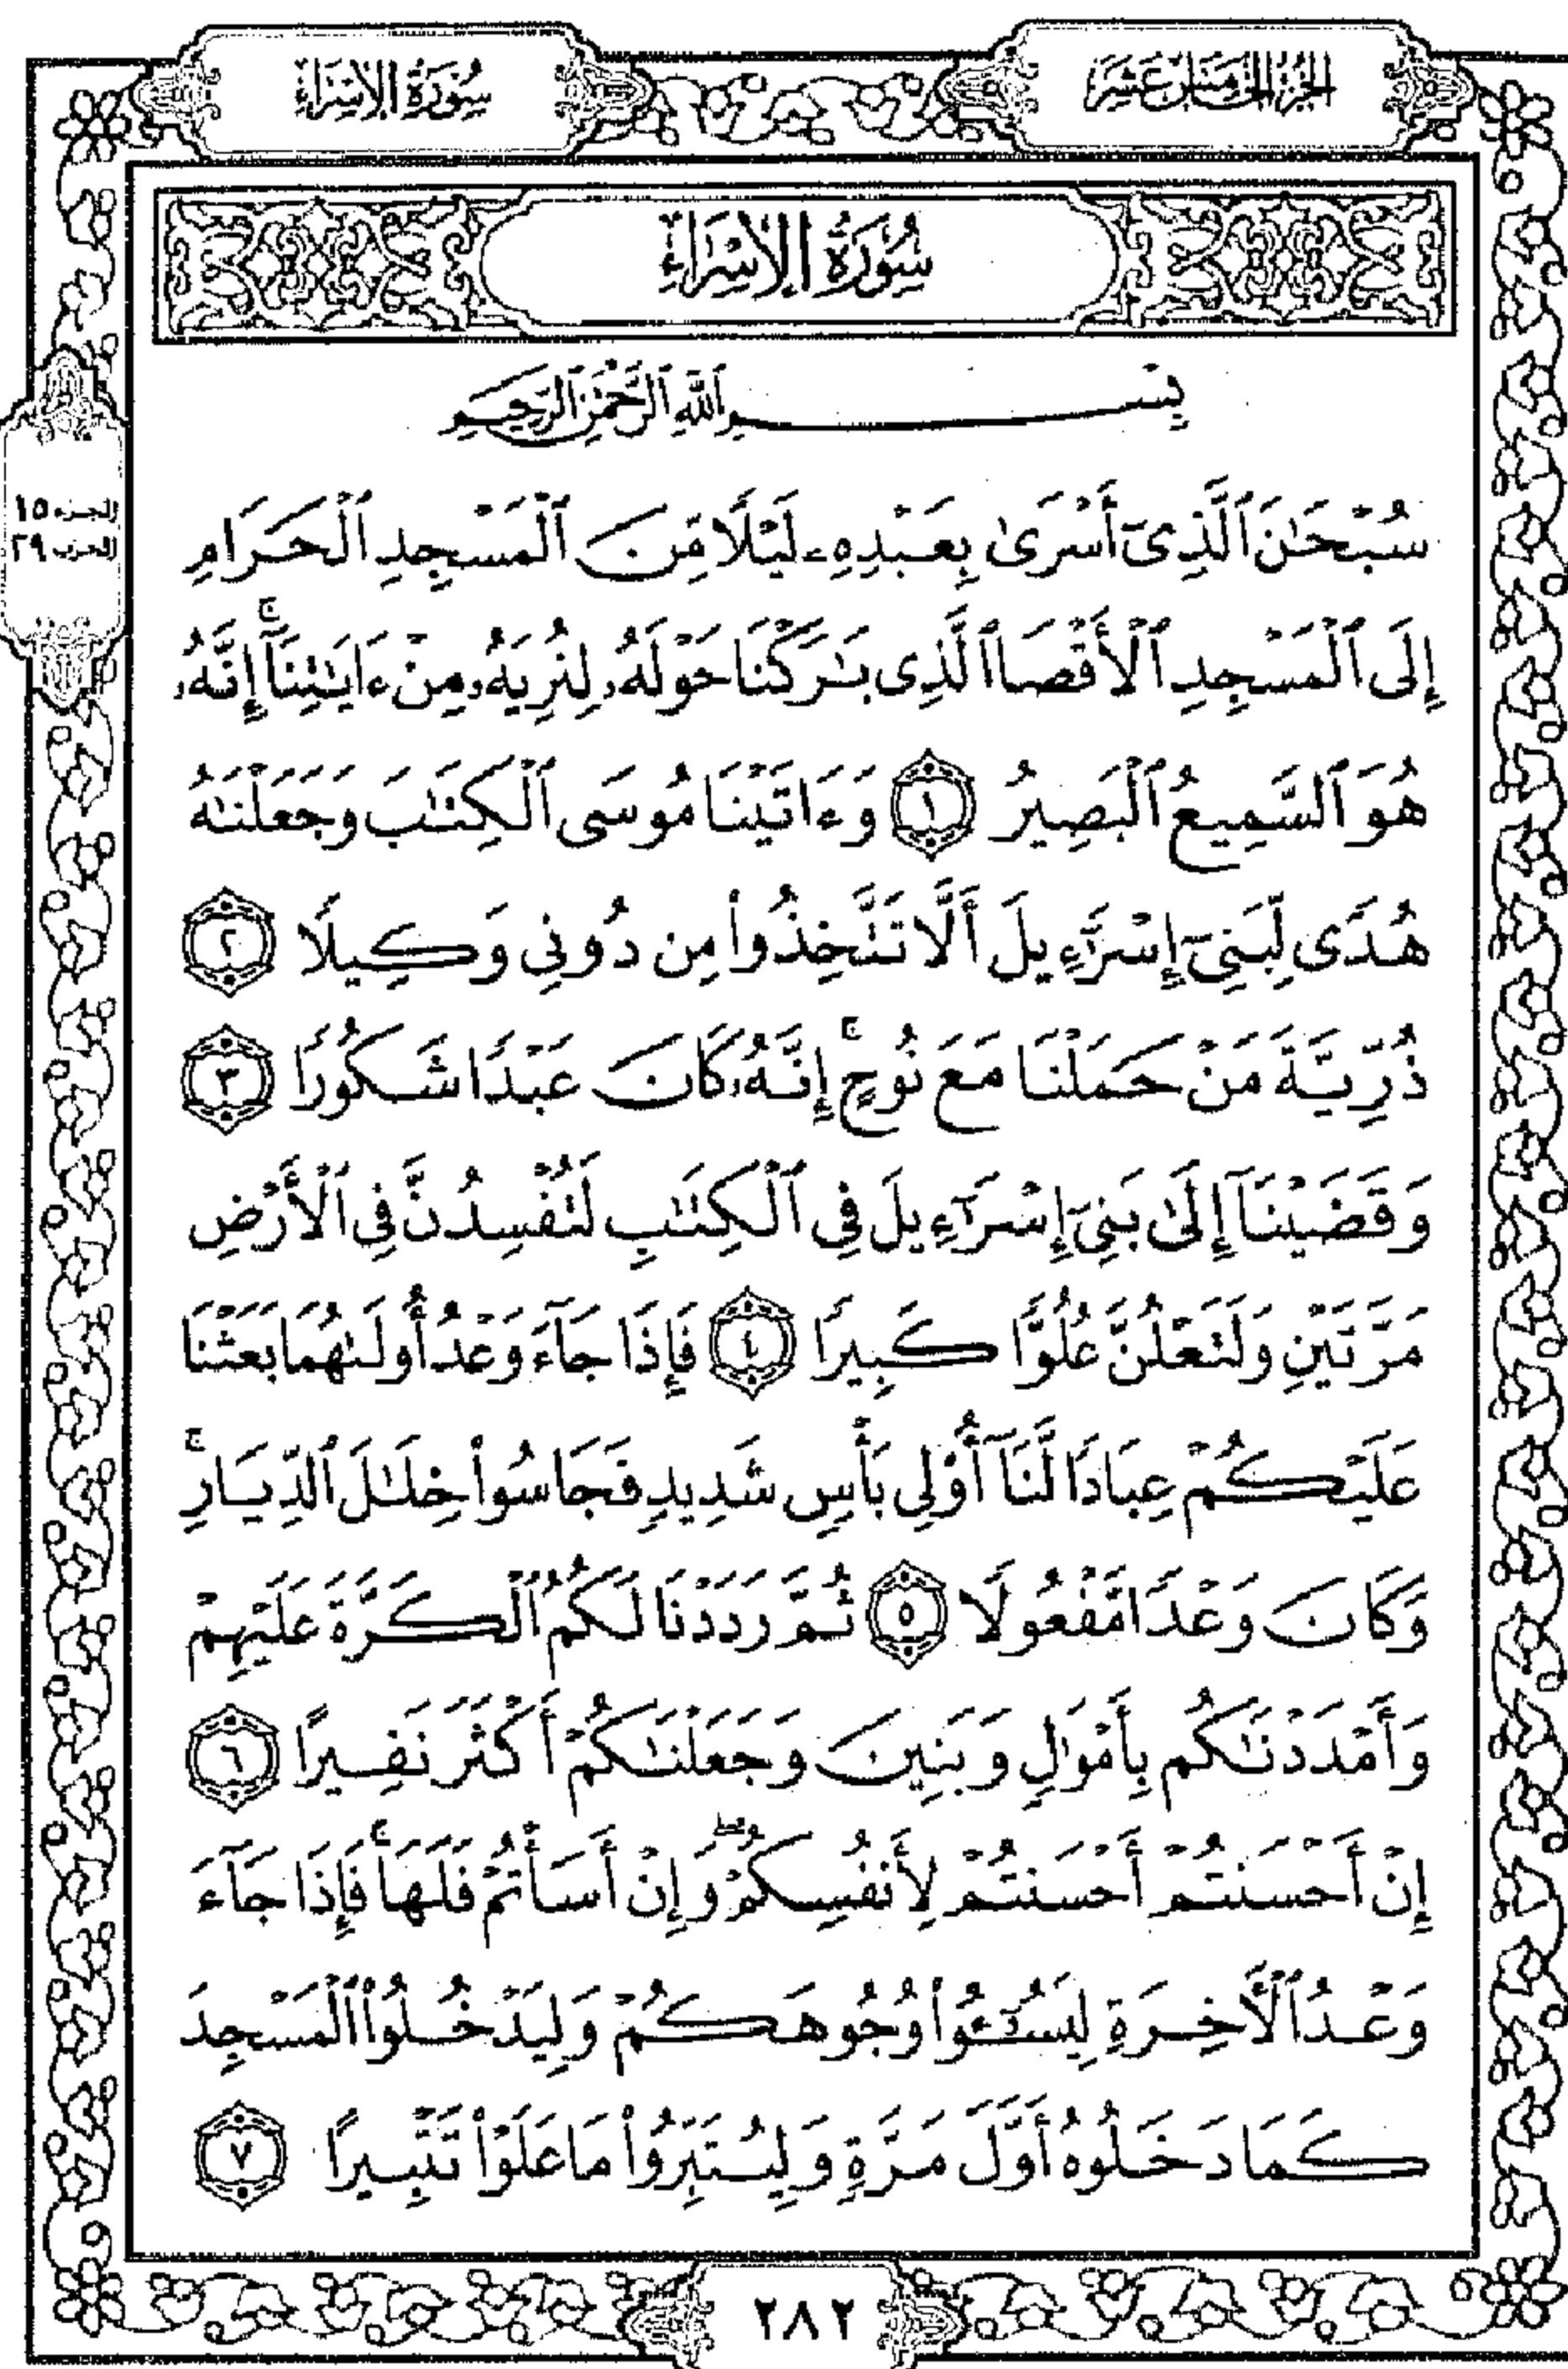 الجزء الخامس عشر
سورة الإسراء
سُورَةُ الإِسْرَاءِ
بِسْمِ ٱللَّهِ ٱلرَّحْمَٰنِ ٱلرَّحِيمِ
الجزء ١٥
الحزب ٢٩
سُبْحَٰنَ ٱلَّذِىٓ أَسْرَىٰ بِعَبْدِهِۦ لَيْلًا مِّنَ ٱلْمَسْجِدِ ٱلْحَرَامِ
إِلَى ٱلْمَسْجِدِ ٱلْأَقْصَا ٱلَّذِى بَٰرَكْنَا حَوْلَهُۥ لِنُرِيَهُۥ مِنْ ءَايَٰتِنَآ ۚ إِنَّهُۥ
هُوَ ٱلسَّمِيعُ ٱلْبَصِيرُ ١ وَءَاتَيْنَا مُوسَى ٱلْكِتَٰبَ وَجَعَلْنَٰهُ
هُدًى لِّبَنِىٓ إِسْرَٰٓءِيلَ أَلَّا تَتَّخِذُوا۟ مِن دُونِى وَكِيلًا ٢
ذُرِّيَّةَ مَنْ حَمَلْنَا مَعَ نُوحٍ ۚ إِنَّهُۥ كَانَ عَبْدًا شَكُورًا ٣
وَقَضَيْنَآ إِلَىٰ بَنِىٓ إِسْرَٰٓءِيلَ فِى ٱلْكِتَٰبِ لَتُفْسِدُنَّ فِى ٱلْأَرْضِ
مَرَّتَيْنِ وَلَتَعْلُنَّ عُلُوًّا كَبِيرًا ٤ فَإِذَا جَآءَ وَعْدُ أُولَىٰهُمَا بَعَثْنَا
عَلَيْكُمْ عِبَادًا لَّنَآ أُو۟لِى بَأْسٍ شَدِيدٍ فَجَاسُوا۟ خِلَٰلَ ٱلدِّيَارِ ۚ
وَكَانَ وَعْدًا مَّفْعُولًا ٥ ثُمَّ رَدَدْنَا لَكُمُ ٱلْكَرَّةَ عَلَيْهِمْ
وَأَمْدَدْنَٰكُم بِأَمْوَٰلٍ وَبَنِينَ وَجَعَلْنَٰكُمْ أَكْثَرَ نَفِيرًا ٦
إِنْ أَحْسَنتُمْ أَحْسَنتُمْ لِأَنفُسِكُمْ ۖ وَإِنْ أَسَأْتُمْ فَلَهَا ۚ فَإِذَا جَآءَ
وَعْدُ ٱلْءَاخِرَةِ لِيَسُۥٓـُٔوا۟ وُجُوهَكُمْ وَلِيَدْخُلُوا۟ ٱلْمَسْجِدَ
كَمَا دَخَلُوهُ أَوَّلَ مَرَّةٍ وَلِيُتَبِّرُوا۟ مَا عَلَوْا۟ تَتْبِيرًا ٧
٢٨٢